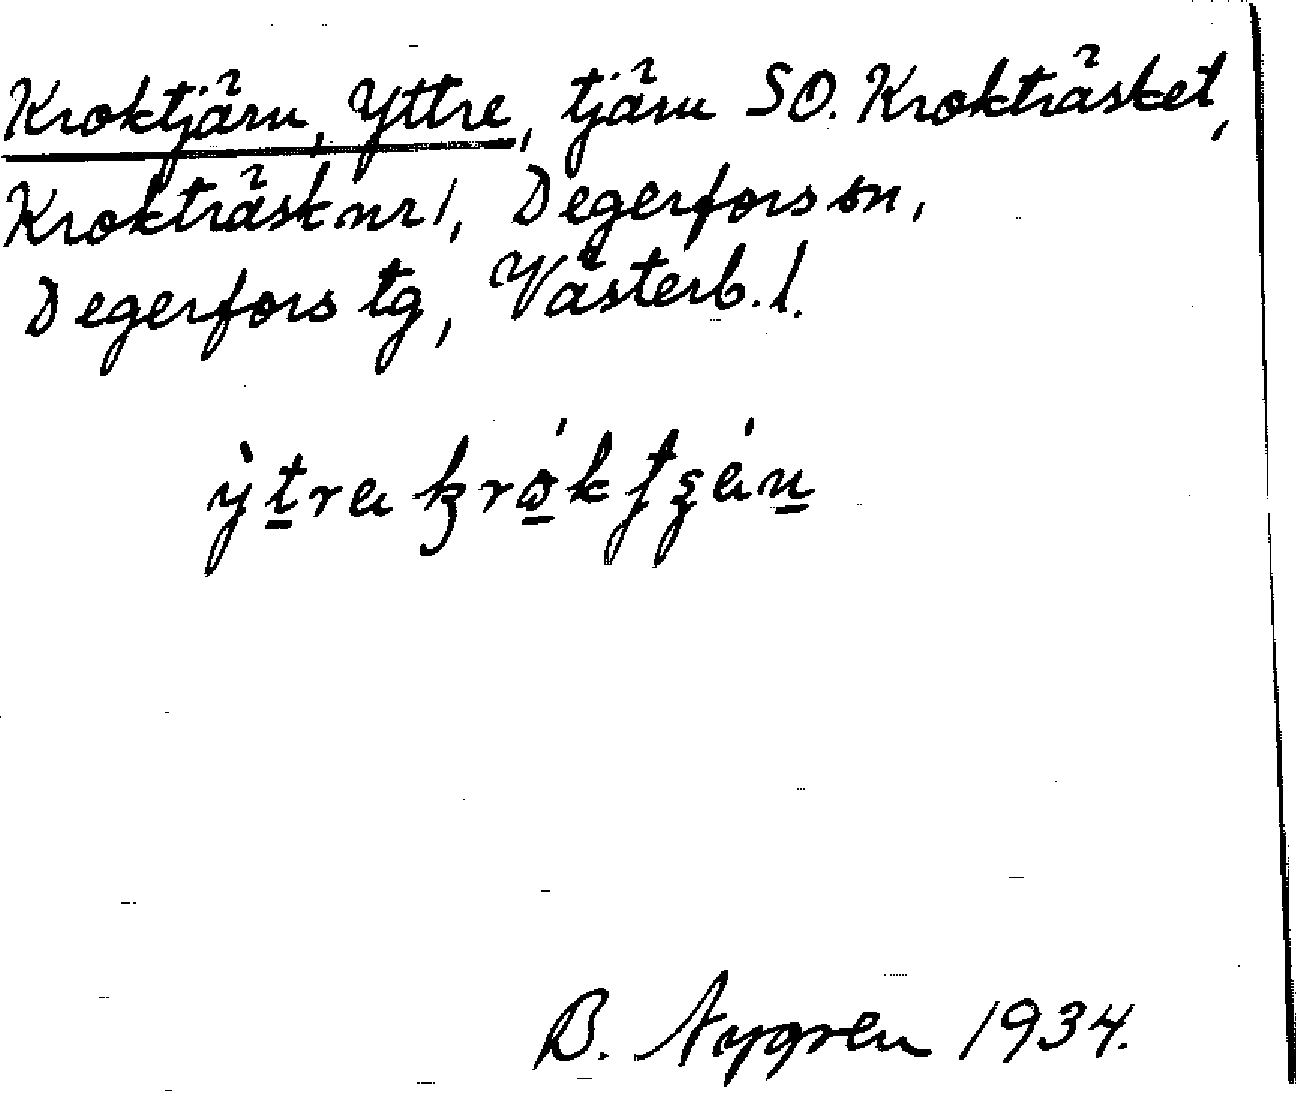 Kroktjärn, Yttre, tjärn SO. Krokträsket,
Krokträsk nr 1, Degerfors sn,
Degerfors tg, Västerb. l.
B. Nygren 1934.